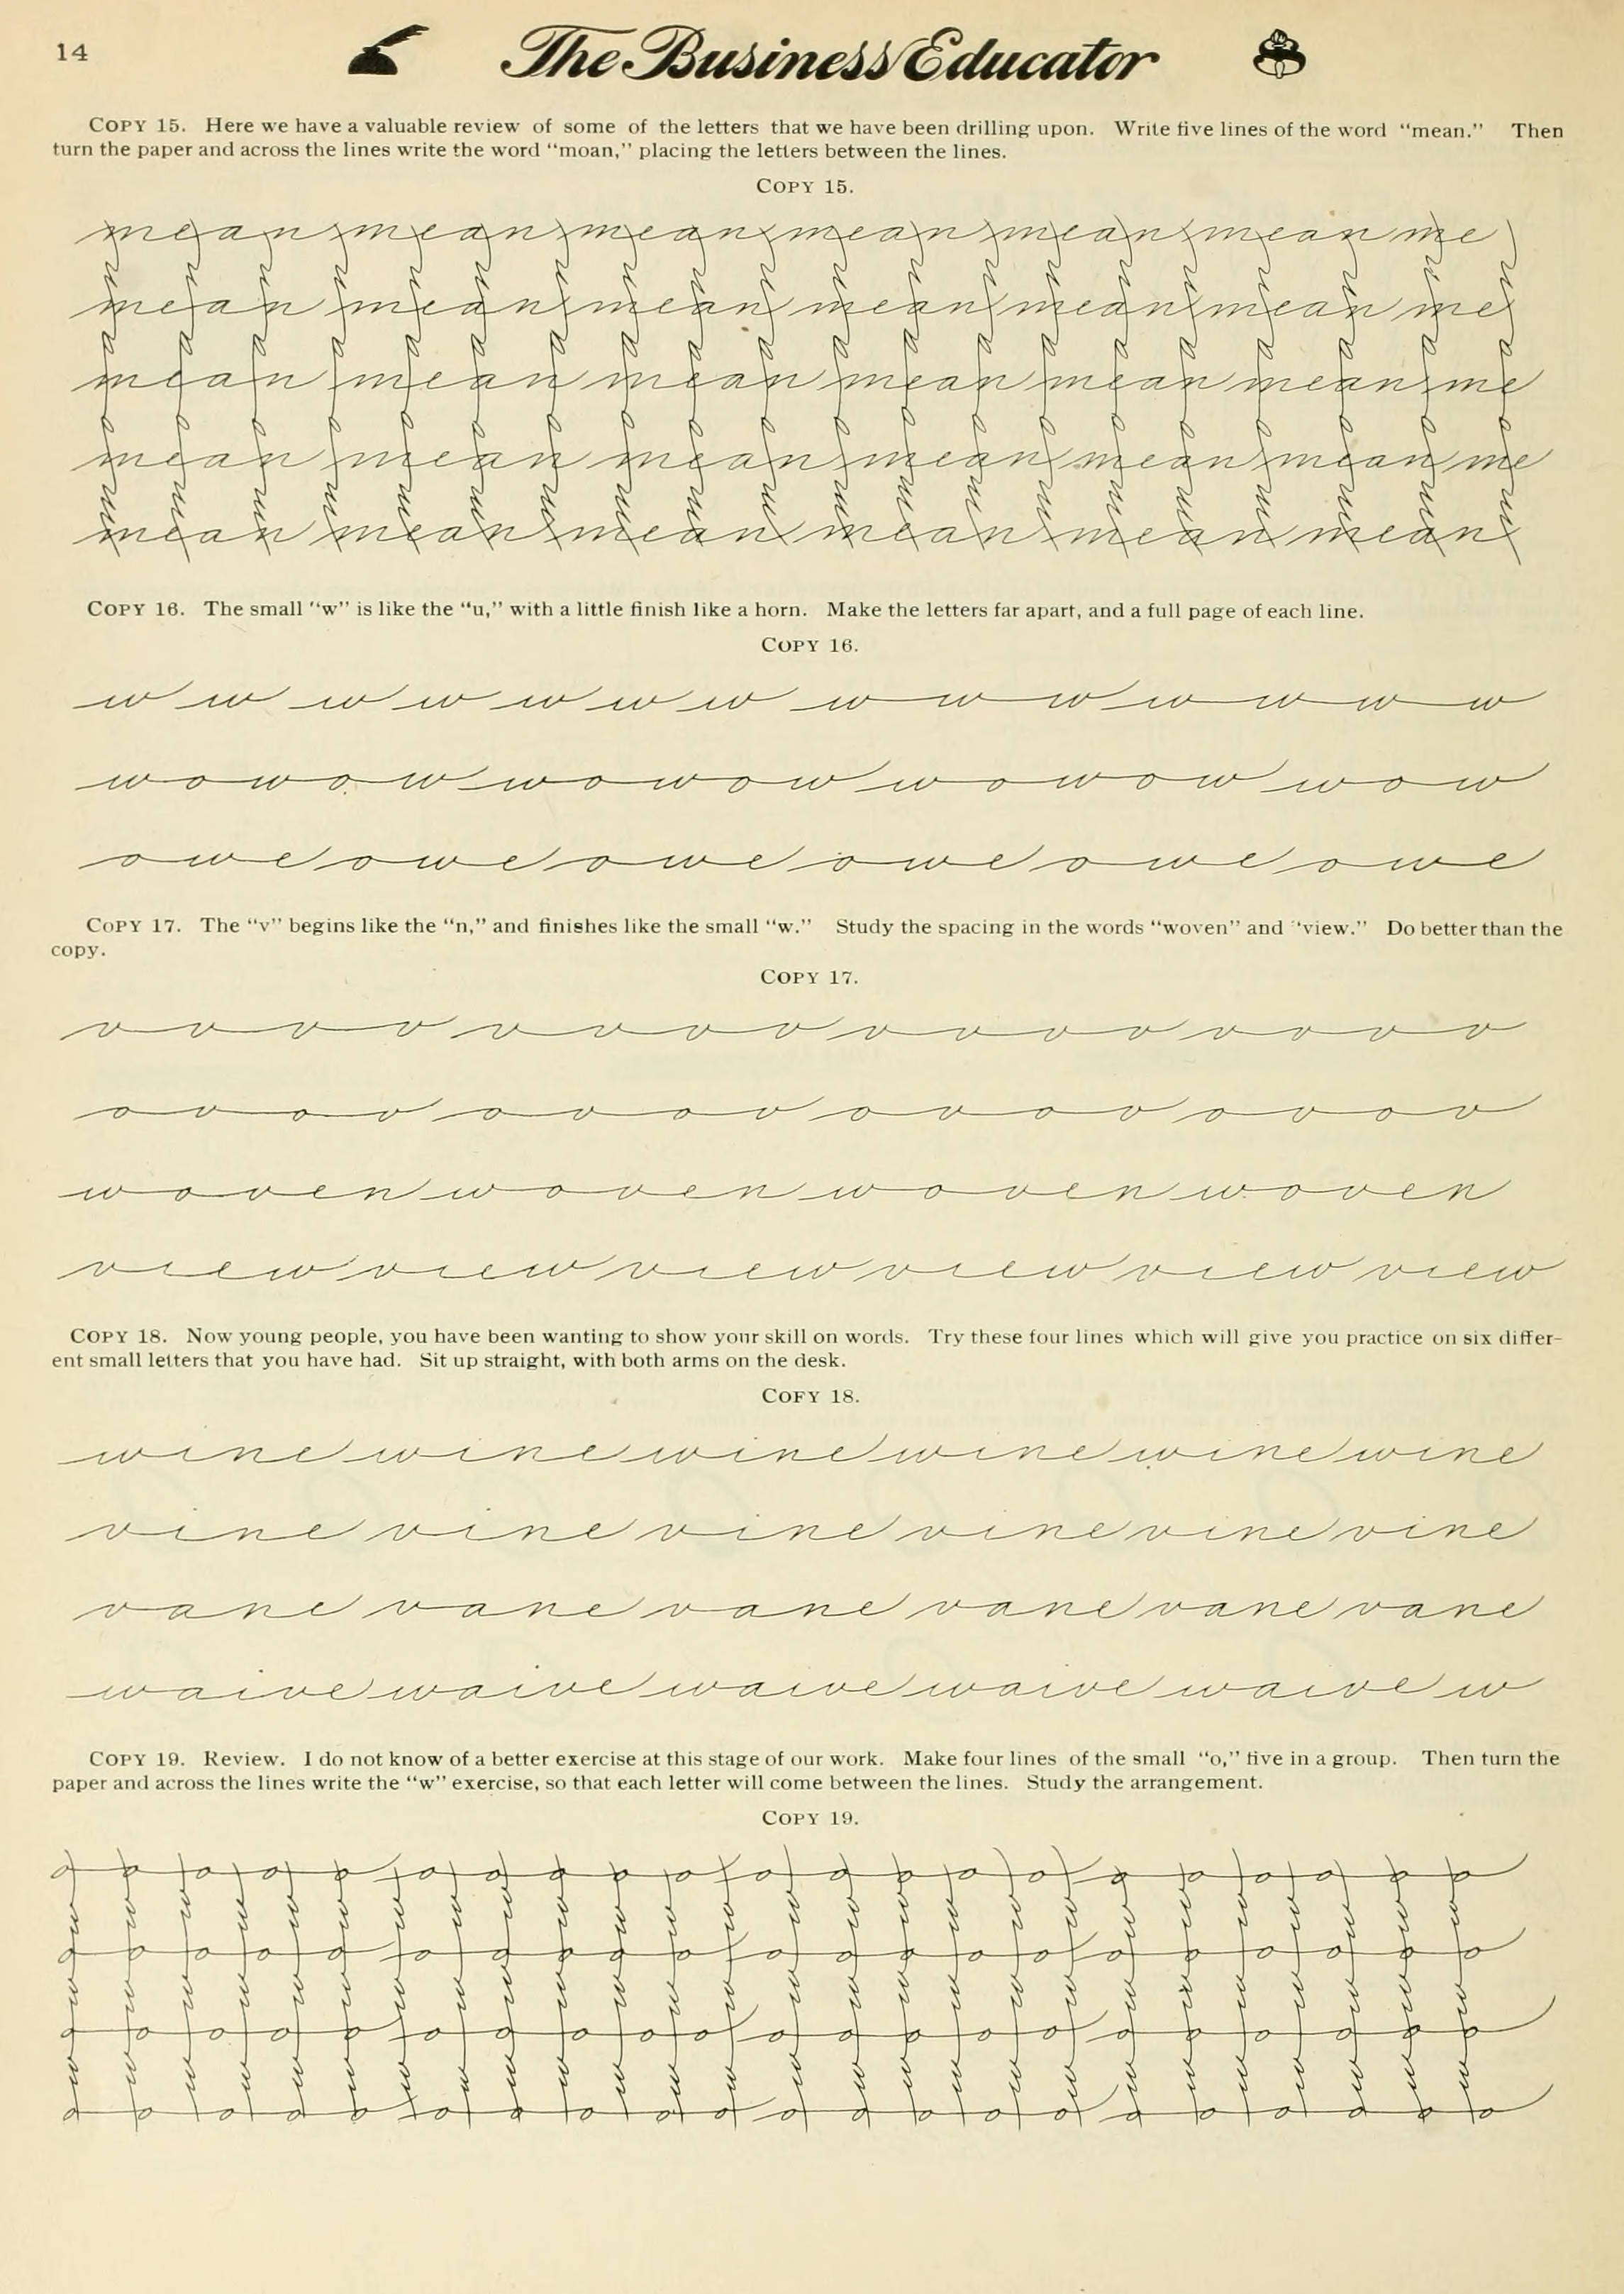 14
The Business Educator
COPY 15. Here we have a valuable review of some of the letters that we have been drilling upon. Write five lines of the word “mean.” Then
turn the paper and across the lines write the word “moan,” placing the letters between the lines.
COPY 15.
mean mean mean mean mean mean me
mean mean mean mean mean mean me
mean mean mean mean mean mean me
mean mean mean mean mean mean me
mean mean mean mean mean mean
COPY 16. The small “w” is like the “u,” with a little finish like a horn. Make the letters far apart, and a full page of each line.
COPY 16.
w w w w w w w w w w w w w w
w o w o w w o w o w w o w o w w o w
owe owe owe owe owe owe
COPY 17. The “v” begins like the “n,” and finishes like the small “w.” Study the spacing in the words “woven” and “view.” Do better than the
copy.
COPY 17.
v v v v v v v v v v v v v v v v
o v o v o v o v o v o v o v o v
woven woven woven woven
view view view view view view
COPY 18. Now young people, you have been wanting to show your skill on words. Try these four lines which will give you practice on six differ-
ent small letters that you have had. Sit up straight, with both arms on the desk.
COFY 18.
wine wine wine wine wine wine
vine vine vine vine vine vine
vane vane vane vane vane vane
waive waive waive waive waive w
COPY 19. Review. I do not know of a better exercise at this stage of our work. Make four lines of the small “o,” five in a group. Then turn the
paper and across the lines write the “w” exercise, so that each letter will come between the lines. Study the arrangement.
COPY 19.
o o o o o o o o o o o o o o o o o o o o o o o
o o o o o o o o o o o o o o o o o o o o o o o
o o o o o o o o o o o o o o o o o o o o o o o
o o o o o o o o o o o o o o o o o o o o o o o